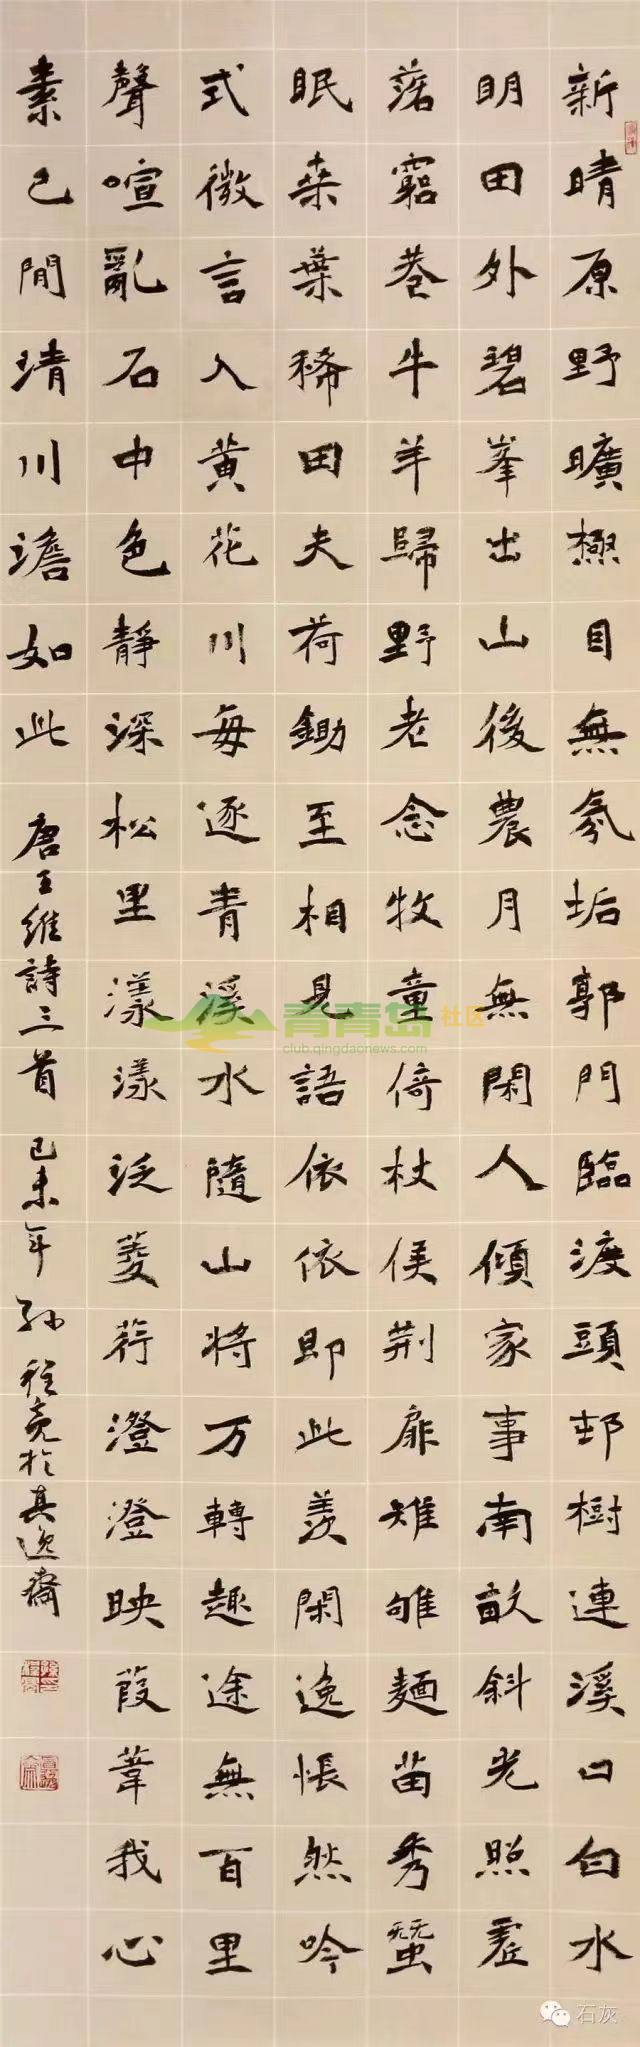 新晴原野曠極目無氛垢郭門臨渡頭邨樹連溪口白水
明田外碧峯出山後農月無閑人傾家事南畝斜光照虛
落窮巷牛羊歸野老念牧童倚杖候荆扉雉雊麵苗秀蠶
眠桑葉稀田夫荷鋤至相見語依依即此羨閑逸悵然吟
式微言入黃花川每逐青溪水隨山將万轉趣途無百里
聲喧亂石中色靜深松里漾漾泛菱荇澄澄映葭葦我心
素已閒清川澹如此 唐王維詩三首 己未年 孫 於真逸齋
青青岛社区
club.qingdaonews.com
石灰